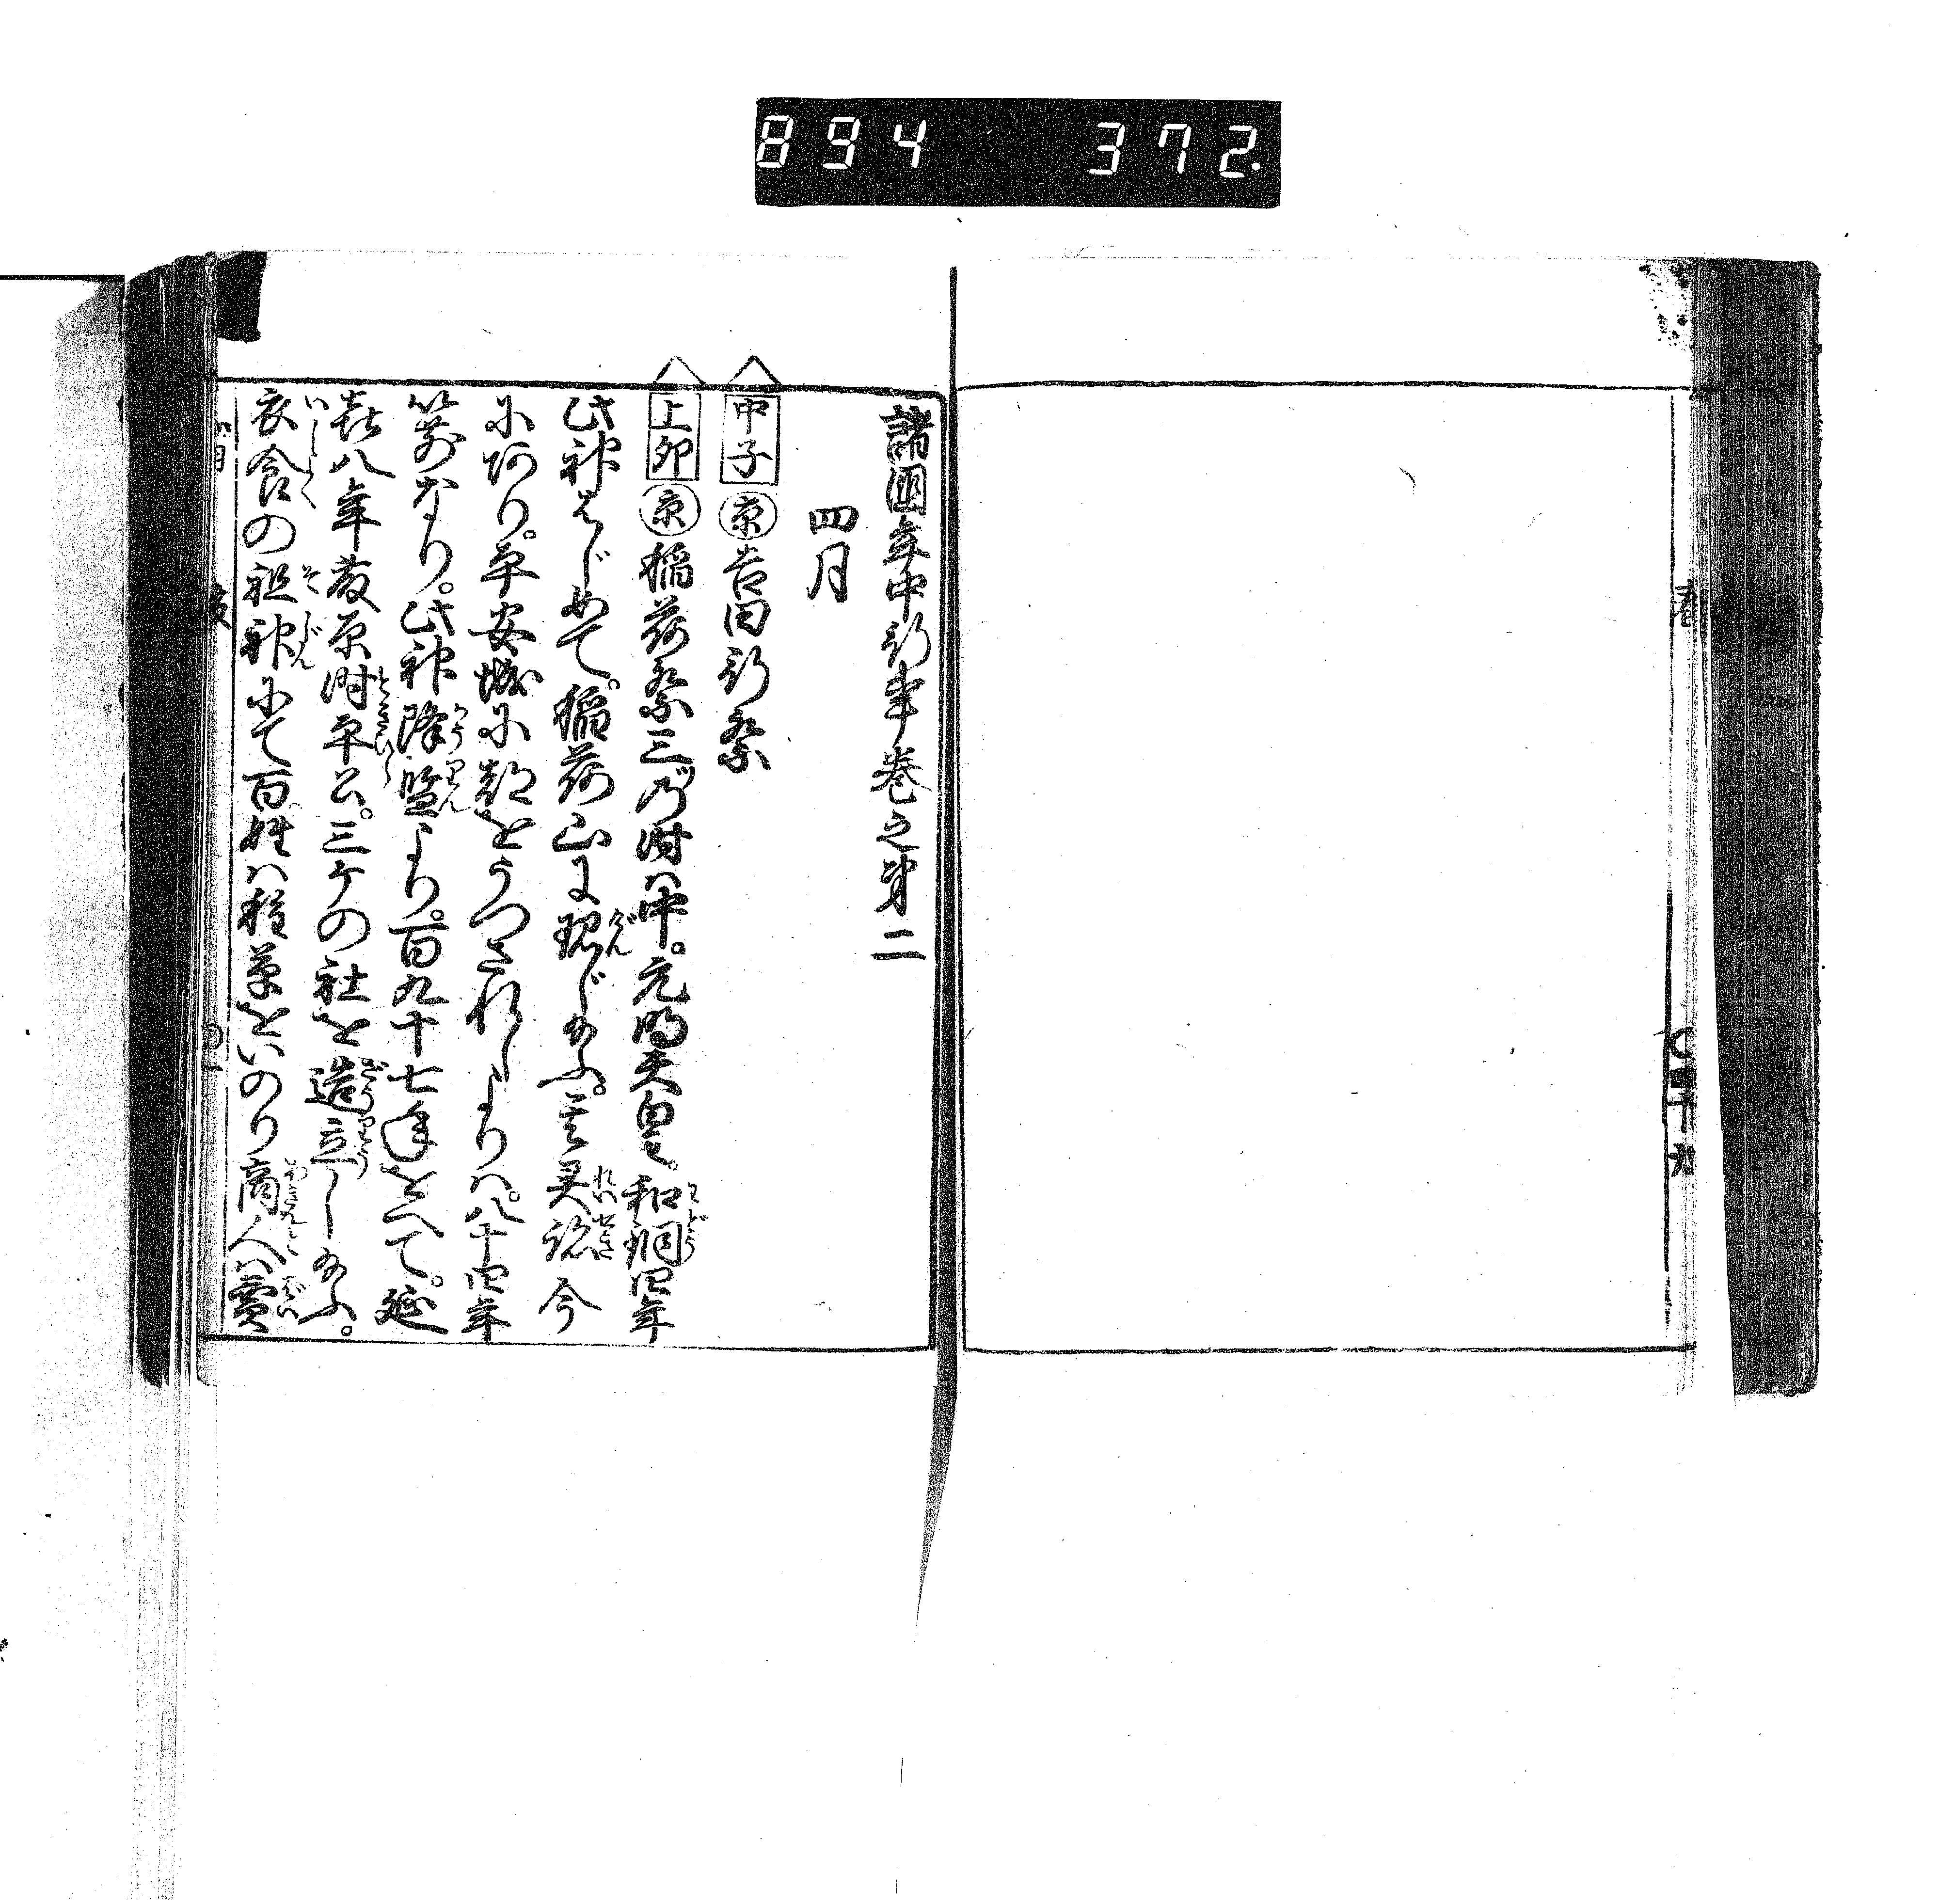 894 372.
諸國年中行事巻之第二
四月
中子 京 吉田祭
上卯 京 稲荷祭三乃時ハ中。元明天皇。和銅四年
此神はじめて。稲荷山に現じ給ふ。其灵跡今
にあり。平安城に都をうつされしよりハ。八十四年
以前なり。此神降臨より。百九十七年をへて。延
喜八年藤原時平公。三ケの社を造立し給ふ。
衣食の祖神にて百姓ハ稼穡をいのり商人ハ賣